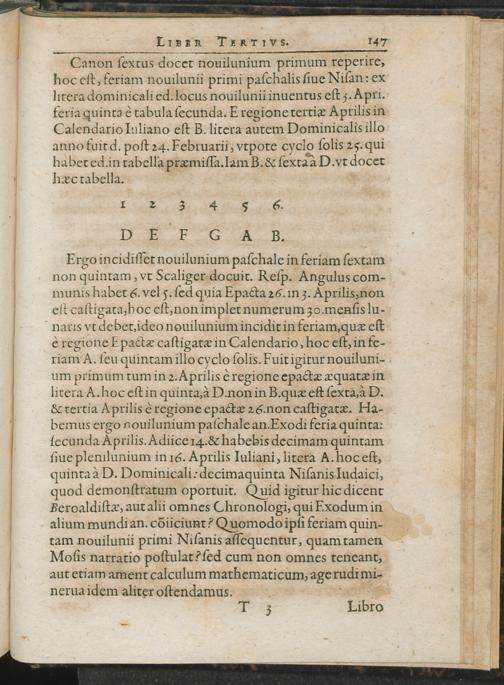 LIBER TERTIVS. 147
Canon ſextus docet nouilunium primum reperire,
hoc eſt, feriam nouilunii primi paſchalis ſiue Niſan: ex
litera dominicali ed. locus nouilunii inuentus eſt 3. Apri.
feria quinta è tabula ſecunda. E regione tertiæ Aprilis in
Calendario Iuliano eſt B. litera autem Dominicalis illo
anno fuit d. poſt 24. Februarii, vtpote cyclo ſolis 25. qui
habet ed. in tabella præmiſſa. Iam B. & ſexta à D. vt docet
hæc tabella.
1 2 3 4 5 6.
D E F G A B.
Ergo incidiſſet nouilunium paſchale in feriam ſextam
non quintam, vt Scaliger docuit. Reſp. Angulus com-
munis habet 6. vel 5. ſed quia Epacta 26. in 3. Aprilis, non
eſt caſtigata, hoc eſt, non implet numerum 30. mensis lu-
naris vt debet, ideo nouilunium incidit in feriam, quæ eſt
è regione Epactæ caſtigatæ in Calendario, hoc eſt, in fe-
riam A. ſeu quintam illo cyclo ſolis. Fuit igitur nouiluni-
um primum tum in 2. Aprilis è regione epactæ æquatæ in
litera A. hoc eſt in quinta, à D. non in B. quæ eſt ſexta, à D.
& tertia Aprilis è regione epactæ 26. non caſtigatæ. Ha-
bemus ergo nouilunium paſchale an. Exodi feria quinta:
ſecunda Aprilis. Adiice 14. & habebis decimam quintam
ſiue plenilunium in 16. Aprilis Iuliani, litera A. hoc eſt,
quinta à D. Dominicali: decimaquinta Niſanis Iudaici,
quod demonſtratum oportuit. Quid igitur hic dicent
Beroaldiſtæ, aut alii omnes Chronologi, qui Exodum in
alium mundi an. cõiiciunt? Quomodo ipſi feriam quin-
tam nouilunii primi Niſanis aſſequentur, quam tamen
Moſis narratio poſtulat? ſed cum non omnes teneant,
aut etiam ament calculum mathematicum, age rudi mi-
nerua idem aliter oſtendamus.
T 3 Libro